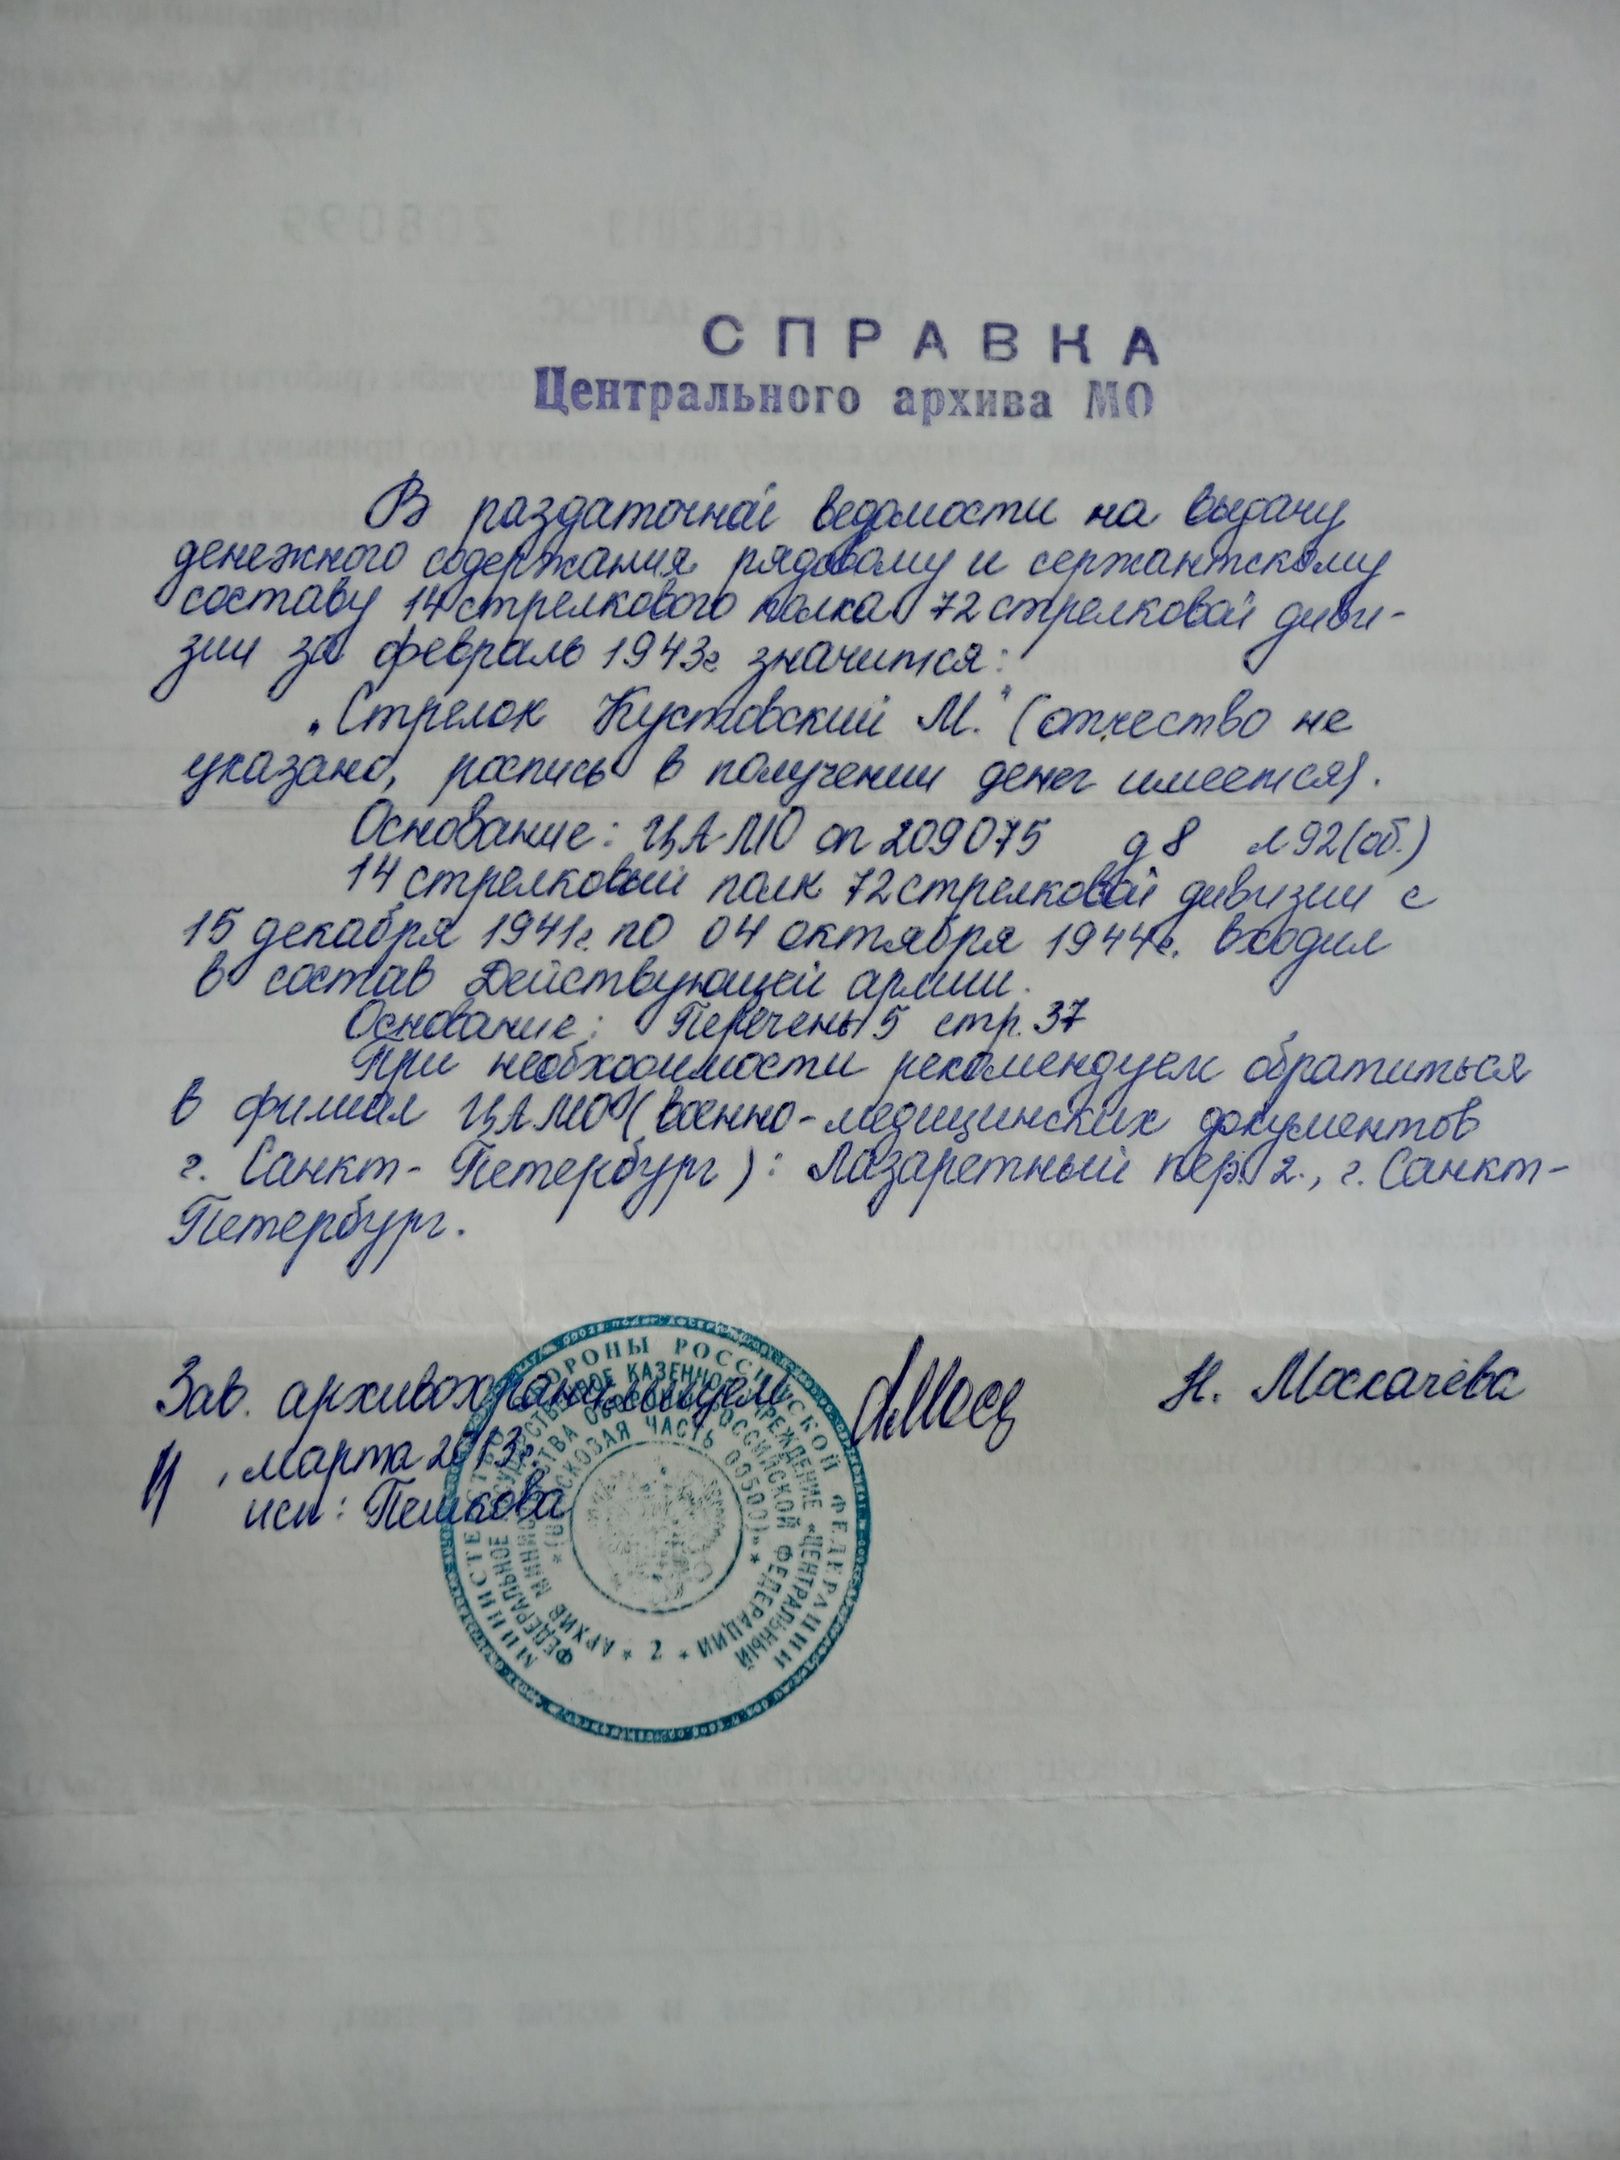 СПРАВКА
Центрального архива МО
В раздаточной ведомости на выдачу
денежного содержания рядовому и сержантскому
составу 14 стрелкового полка 72 стрелковой диви-
зии за февраль 1943г значится:
"Стрелок Кустовский М." (отчество не
указано, роспись в получении денег имеется).
Основание: ЦАМО оп 209075 д 8 л 92(об.)
14 стрелковый полк 72 стрелковой дивизии с
15 декабря 1941г. по 04 октября 1944г. входил
в состав Действующей армии.
Основание: Перечень 5 стр. 37
При необходимости рекомендуем обратиться
в филиал ЦАМО (военно-медицинских документов
г. Санкт-Петербург): Лазаретный пер. 2., г. Санкт-
Петербург.
Зав. архивохранилищем Н. Москачёва
11 марта 2013г.
исп: Пешкова
МИНИСТЕРСТВО ОБОРОНЫ РОССИЙСКОЙ ФЕДЕРАЦИИ
ФЕДЕРАЛЬНОЕ ГОСУДАРСТВЕННОЕ КАЗЕННОЕ УЧРЕЖДЕНИЕ «ЦЕНТРАЛЬНЫЙ
АРХИВ МИНИСТЕРСТВА ОБОРОНЫ РОССИЙСКОЙ ФЕДЕРАЦИИ
(ВОЙСКОВАЯ ЧАСТЬ 00500)»
* 2 *
208099